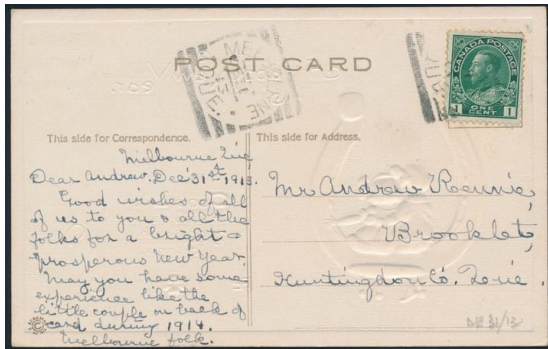 POST CARD
MELBOURNE
QUE.
CANADA POSTAGE
1 ONE CENT 1
This side for Correspondence.
This side for Address.
Melbourne Que
Dear Andrew. Dec 31st 1913.
Good wishes of all
of us to you & all the
folks for a bright &
prosperous New Year.
May you have some
experience like the
little couple on back of
card during 1914.
Melbourne folk.
Mr Andrew Rennie,
Brooklet,
Huntingdon Co. Que.
DE 31/13